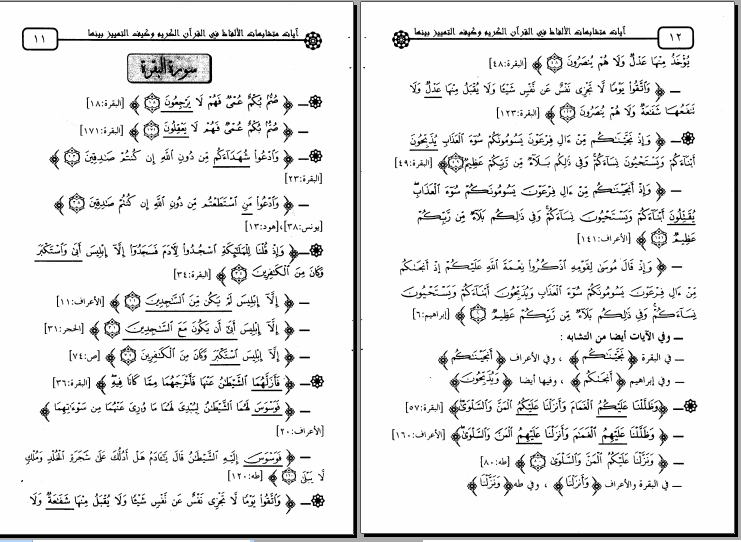 آيات متشابهات الألفاظ في القرآن الكريم وكيف التمييز بينها
١١
سورة البقرة
ـ ﴿ صُمٌّ بُكْمٌ عُمْىٌ فَهُمْ لَا يَرْجِعُونَ ﴾ [البقرة:١٨]
ـ ﴿ صُمٌّ بُكْمٌ عُمْىٌ فَهُمْ لَا يَعْقِلُونَ ﴾ [البقرة:١٧١]
ـ ﴿ وَادْعُوا شُهَدَآءَكُم مِّن دُونِ اللَّهِ إِن كُنتُمْ صَادِقِينَ ﴾
[البقرة:٢٣]
ـ ﴿ وَادْعُوا مَنِ اسْتَطَعْتُم مِّن دُونِ اللَّهِ إِن كُنتُمْ صَادِقِينَ ﴾
[يونس:٣٨]،[هود:١٣]
ـ ﴿ وَإِذْ قُلْنَا لِلْمَلَٰٓئِكَةِ اسْجُدُوا لِآدَمَ فَسَجَدُوٓا إِلَّآ إِبْلِيسَ أَبَىٰ وَاسْتَكْبَرَ
وَكَانَ مِنَ الْكَٰفِرِينَ ﴾ [البقرة:٣٤]
ـ ﴿ إِلَّآ إِبْلِيسَ لَمْ يَكُن مِّنَ السَّٰجِدِينَ ﴾ [الأعراف:١١]
ـ ﴿ إِلَّآ إِبْلِيسَ أَبَىٰٓ أَن يَكُونَ مَعَ السَّٰجِدِينَ ﴾ [الحجر:٣١]
ـ ﴿ إِلَّآ إِبْلِيسَ اسْتَكْبَرَ وَكَانَ مِنَ الْكَٰفِرِينَ ﴾ [ص:٧٤]
ـ ﴿ فَأَزَلَّهُمَا الشَّيْطَٰنُ عَنْهَا فَأَخْرَجَهُمَا مِمَّا كَانَا فِيهِ ﴾ [البقرة:٣٦]
ـ ﴿ فَوَسْوَسَ لَهُمَا الشَّيْطَٰنُ لِيُبْدِىَ لَهُمَا مَا وُۥرِىَ عَنْهُمَا مِن سَوْءَٰتِهِمَا ﴾
[الأعراف:٢٠]
ـ ﴿ فَوَسْوَسَ إِلَيْهِ الشَّيْطَٰنُ قَالَ يَٰٓـَٔادَمُ هَلْ أَدُلُّكَ عَلَىٰ شَجَرَةِ الْخُلْدِ وَمُلْكٍ
لَّا يَبْلَىٰ ﴾ [طه:١٢٠]
ـ ﴿ وَاتَّقُوا يَوْمًا لَّا تَجْزِى نَفْسٌ عَن نَّفْسٍ شَيْـًٔا وَلَا يُقْبَلُ مِنْهَا شَفَٰعَةٌ وَلَا
١٢
آيات متشابهات الألفاظ في القرآن الكريم وكيف التمييز بينها
يُؤْخَذُ مِنْهَا عَدْلٌ وَلَا هُمْ يُنصَرُونَ ﴾ [البقرة:٤٨]
ـ ﴿ وَاتَّقُوا يَوْمًا لَّا تَجْزِى نَفْسٌ عَن نَّفْسٍ شَيْـًٔا وَلَا يُقْبَلُ مِنْهَا عَدْلٌ وَلَا
تَنفَعُهَا شَفَٰعَةٌ وَلَا هُمْ يُنصَرُونَ ﴾ [البقرة:١٢٣]
ـ ﴿ وَإِذْ نَجَّيْنَٰكُم مِّنْ ءَالِ فِرْعَوْنَ يَسُومُونَكُمْ سُوٓءَ الْعَذَابِ يُذَبِّحُونَ
أَبْنَآءَكُمْ وَيَسْتَحْيُونَ نِسَآءَكُمْ وَفِى ذَٰلِكُم بَلَآءٌ مِّن رَّبِّكُمْ عَظِيمٌ ﴾ [البقرة:٤٩]
ـ ﴿ وَإِذْ أَنجَيْنَٰكُم مِّنْ ءَالِ فِرْعَوْنَ يَسُومُونَكُمْ سُوٓءَ الْعَذَابِ
يُقَتِّلُونَ أَبْنَآءَكُمْ وَيَسْتَحْيُونَ نِسَآءَكُمْ وَفِى ذَٰلِكُم بَلَآءٌ مِّن رَّبِّكُمْ
عَظِيمٌ ﴾ [الأعراف:١٤١]
ـ ﴿ وَإِذْ قَالَ مُوسَىٰ لِقَوْمِهِ اذْكُرُوا نِعْمَةَ اللَّهِ عَلَيْكُمْ إِذْ أَنجَىٰكُم
مِّنْ ءَالِ فِرْعَوْنَ يَسُومُونَكُمْ سُوٓءَ الْعَذَابِ وَيُذَبِّحُونَ أَبْنَآءَكُمْ وَيَسْتَحْيُونَ
نِسَآءَكُمْ وَفِى ذَٰلِكُم بَلَآءٌ مِّن رَّبِّكُمْ عَظِيمٌ ﴾ [إبراهيم:٦]
ـ وفي الآيات أيضا من التشابه :
ـ في البقرة ﴿ نَجَّيْنَٰكُم ﴾ ، وفي الأعراف ﴿ أَنجَيْنَٰكُم ﴾
ـ وفي إبراهيم ﴿ أَنجَىٰكُم ﴾ ، وفيها أيضا ﴿ وَيُذَبِّحُونَ ﴾
ـ ﴿ وَظَلَّلْنَا عَلَيْكُمُ الْغَمَامَ وَأَنزَلْنَا عَلَيْكُمُ الْمَنَّ وَالسَّلْوَىٰ ﴾ [البقرة:٥٧]
ـ ﴿ وَظَلَّلْنَا عَلَيْهِمُ الْغَمَٰمَ وَأَنزَلْنَا عَلَيْهِمُ الْمَنَّ وَالسَّلْوَىٰ ﴾ [الأعراف:١٦٠]
ـ ﴿ وَنَزَّلْنَا عَلَيْكُمُ الْمَنَّ وَالسَّلْوَىٰ ﴾ [طه:٨٠]
ـ في البقرة والأعراف ﴿ وَأَنزَلْنَا ﴾ ، وفي طه ﴿ وَنَزَّلْنَا ﴾